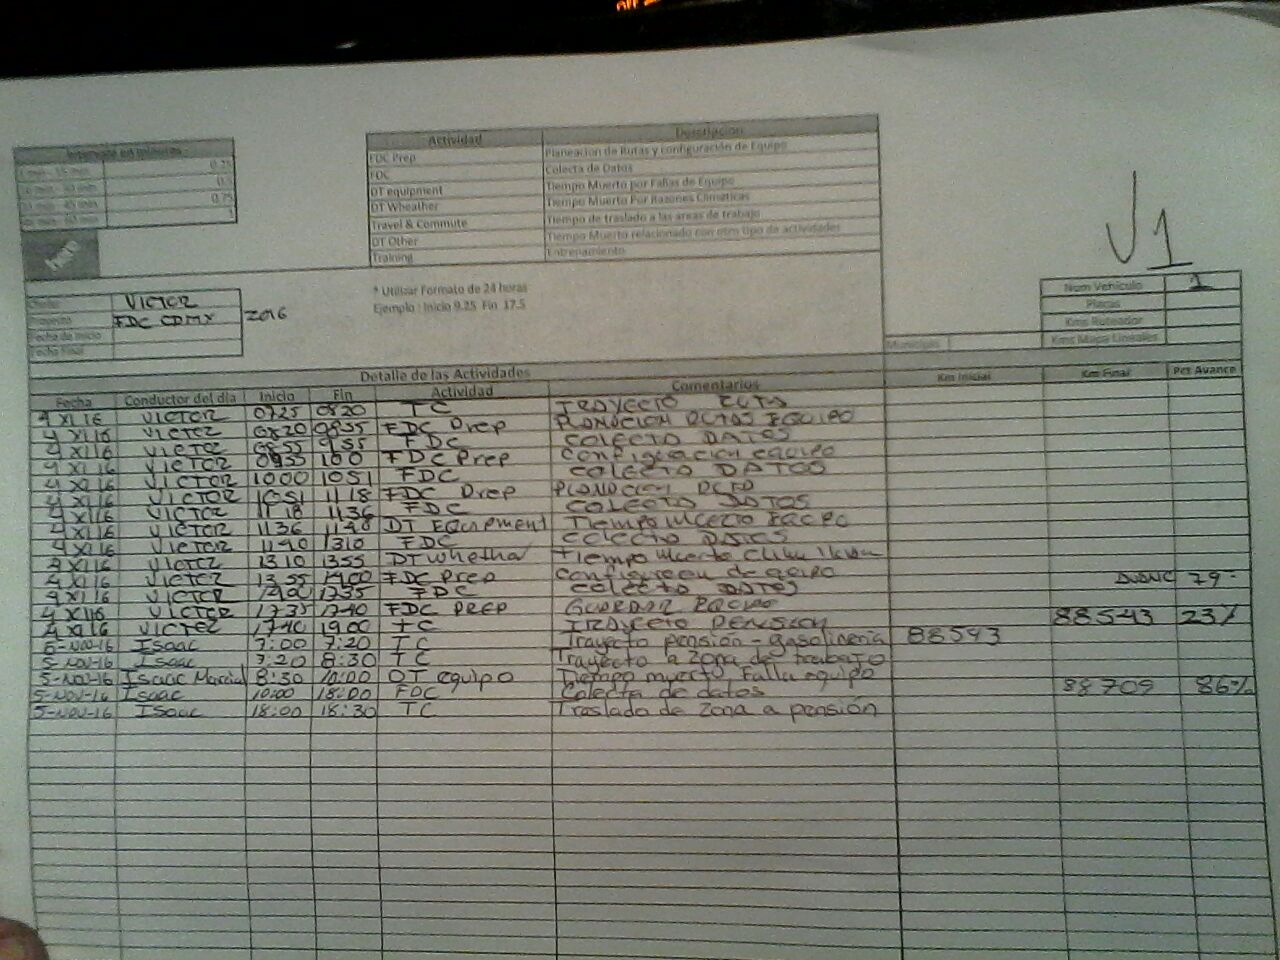 Intervalo en minutos
0.25
0.5
0.75
1
Actividad Descripcion
FDC Prep Planeacion de Rutas y configuración de Equipo
FDC Colecta de Datos
DT equipment Tiempo Muerto por Fallas de Equipo
DT Wheather Tiempo Muerto Por Razones Climaticas
Travel & Commute Tiempo de traslado a las areas de trabajo
DT Other Tiempo Muerto relacionado con otro tipo de actividades
Training Entrenamiento
V1
* Utilizar Formato de 24 horas
Ejemplo : Inicio 9.25 Fin 17.5
VICTOR
FDC CDMX 2016
Fecha de Inicio
Fecha Final
Num Vehiculo 1
Placas
Kms Ruteador
Kms Mapa Lineales
Municipio
Detalle de las Actividades
Fecha Conductor del día Inicio Fin Actividad Comentarios Km Inicial Km Final Pct Avance
4 XI 16 VICTOR 0725 0820 TC TRAYECTO RUTA
4 XI 16 VICTOR 0820 0855 FDC Prep EQUIPO
4 XI 16 VICTOR 0855 0955 FDC COLECTA DATOS
4 XI 16 VICTOR 0955 100 FDC Prep Configuracion equipo
4 XI 16 VICTOR 1000 1051 FDC COLECTA DATOS
4 XI 16 VICTOR 1051 1118 FDC Prep
4 XI 16 VICTOR 1118 1136 FDC COLECTA DATOS
4 XI 16 VICTOR 1136 1140 DT Equipment Tiempo muerto
4 XI 16 VICTOR 1140 1310 FDC COLECTA DATOS
4 XI 16 VICTOR 1310 1355 DT Whether Tiempo muerto
4 XI 16 VICTOR 1355 1400 FDC Prep de equipo
4 XI 16 VICTOR 1400 1735 FDC COLECTA DATOS 79
4 XI 16 VICTOR 1735 1740 FDC PREP GUARDAR EQUIPO
4 XI 16 VICTOR 1740 1900 TC TRAYECTO PENSION 88543 23%
5-NOV-16 Isaac 7:00 7:20 TC Trayecto pensión - gasolineria 88543
5-NOV-16 Isaac 7:20 8:30 TC Trayecto a Zona de trabajo
5-NOV-16 Isaac Marcial 8:30 10:00 DT equipo Tiempo muerto, Falla equipo
5-NOV-16 Isaac 10:00 18:00 FDC Colecta de datos 88709 86%
5-NOV-16 Isaac 18:00 18:30 TC Traslado de Zona a pensión